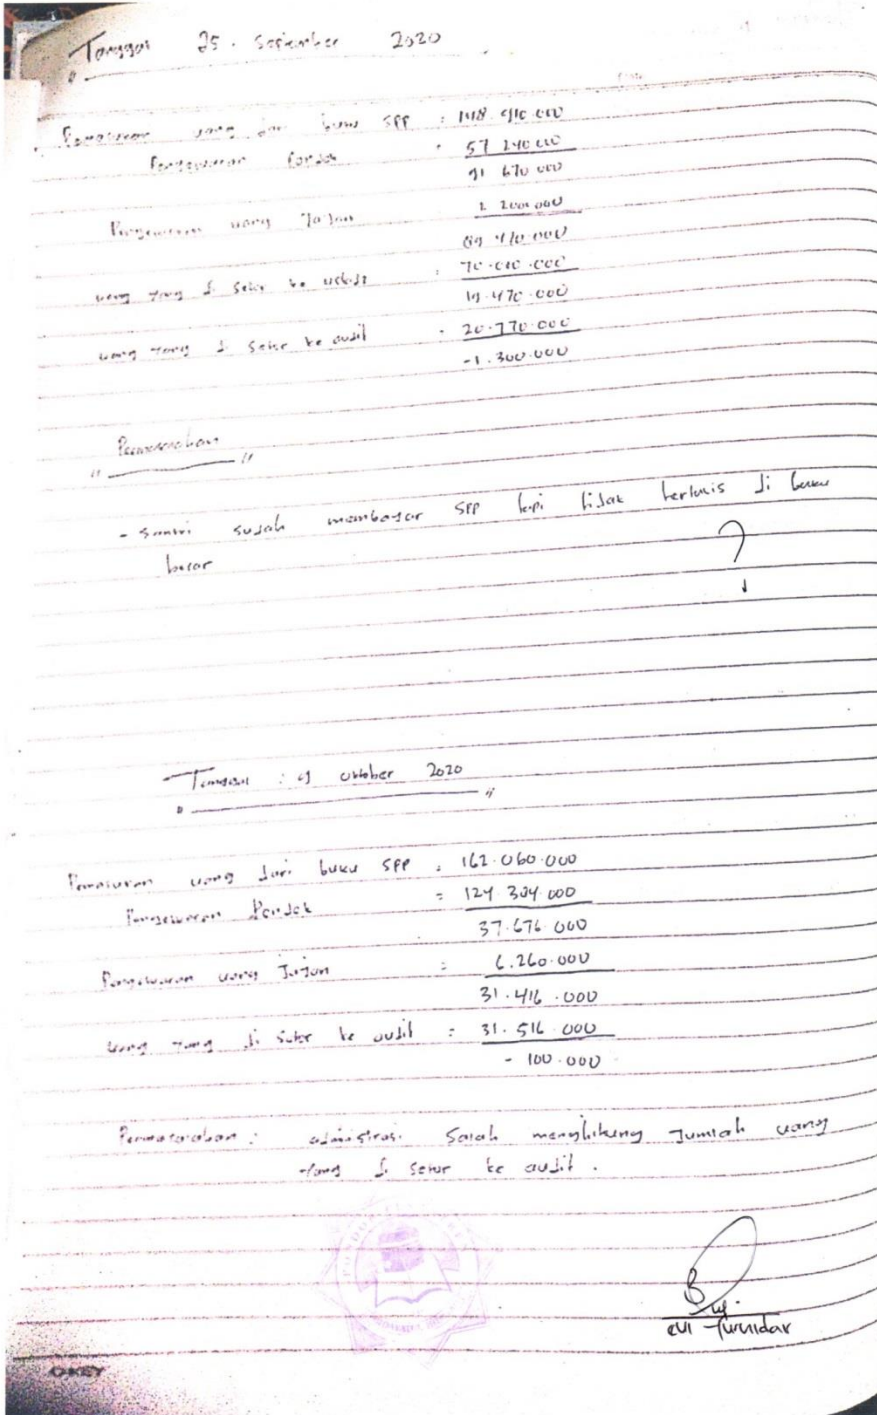 Tanggal 25. September 2020
Pemasukan uang dari buku SPP : 148.910.000
Pengeluaran Pondok : 57 240.000
91 670 000
Pengeluaran uang Jajan 2 200.000
89 470.000
uang yang di setor ke : 70.000.000
19.470.000
uang yang di setor ke audit : 20.770.000
-1.300.000
Permasalahan
- Santri sudah membayar SPP tapi tidak tertulis di buku
besar
?
Tanggal : 9 oktober 2020
Pemasukan uang dari buku SPP : 162.060.000
Pengeluaran Pondok = 124.384.000
37.676.000
Pengeluaran uang Jajan : 6.260.000
31.416.000
uang yang di setor ke audit = 31.516.000
- 100.000
Permasalahan : administrasi salah menghitung Jumlah uang
yang di setor ke audit.
OKEY